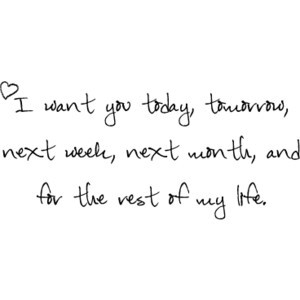 I want you today, tomorrow,
next week, next month, and
for the rest of my life.